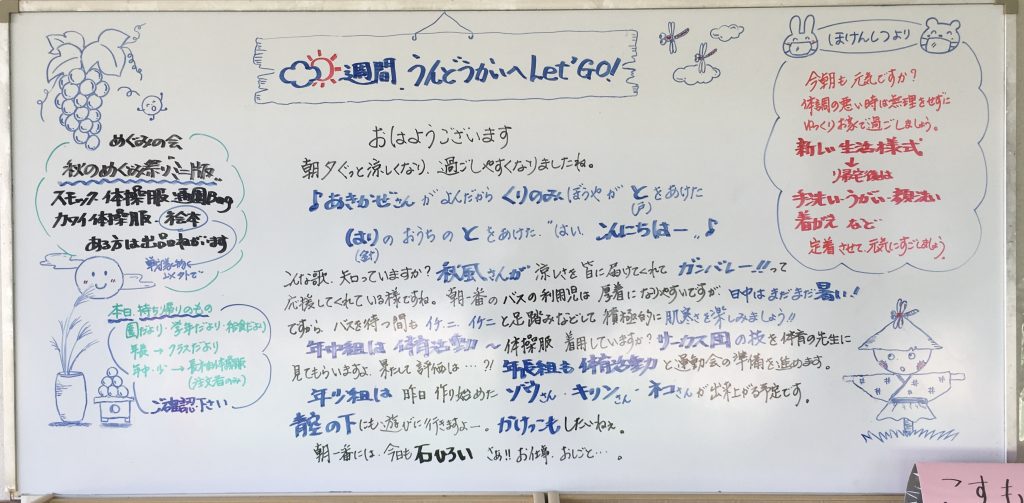 週間 うんどうかいへ Let'GO!
おはようございます
朝夕ぐっと涼しくなり、過ごしやすくなりましたね。
♪あきかぜさんがよんだから くりのみぼうやが とをあけた
(戸)
はりのおうちの とをあけた "はい、こんにちはー" ♪
(針)
こんな歌、知っていますか? 秋風さんが 涼しさを皆に届けてくれて ガンバレー!!って
応援してくれている様ですね。 朝一番のバスの利用児は 厚着になりやすいですが、日中はまだまだ暑い!!
ですから、バスを待つ間も イチ、ニ、イチ、ニと足踏みなどして 積極的に 肌寒さを楽しみましょう!!
年中組は 体育活動 〜 体操服 着用していますか? サーカス団の技を体育の先生に
見てもらいますよ。果たして 評価は…?! 年長組も 体育活動と運動会の準備を進めます。
年少組は 昨日 作り始めた ゾウさん・キリンさん・ネコさんが出来上がる予定です。
青空の下にも遊びに行きますよー。かけっこもしたいねぇ。
朝一番には、今日も 石ひろい さぁ!! お仕事、おしごと…。
めぐみの会
秋のめぐみ祭り ミニ版
スモック 体操服 通園Bag
カタイ体操服・絵本
ある方は出品ねがいます
本日、持ち帰りのもの
園だより・学年だより・給食だより
年長→クラスだより
年中・少→長ズボン体操服
(注文者のみ)
ご確認下さい
ほけんしつより
今朝も元気ですか?
体調の悪い時は無理をせずに
ゆっくりお家で過ごしましょう。
新しい生活様式
↓
帰宅後は
手洗い・うがい・顔洗い
着がえ など
定着させて、元気にすごしましょう。
こすも